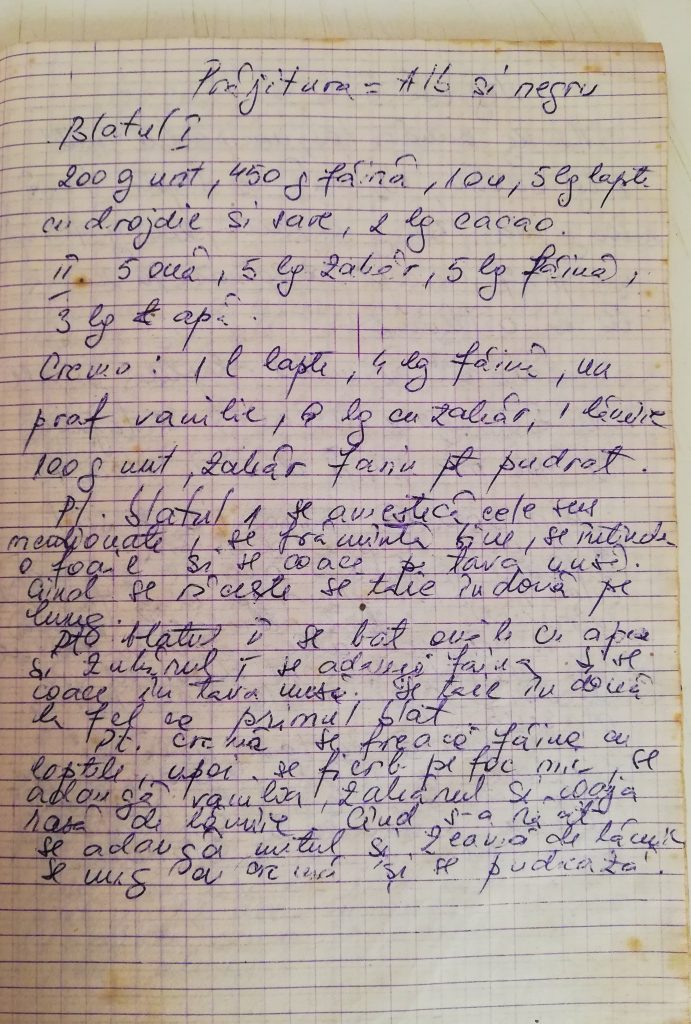 Prăjitura = Alb si negru
Blatul I
200 g unt, 450 g făină, 1 ou, 5 lg lapte
cu drojdie si sare, 2 lg cacao.
II 5 ouă, 5 lg zahăr, 5 lg făină,
3 lg apă.
Crema: 1 l lapte, 4 lg făină, un
praf vanilie, lg cu zahăr, 1 lămîie
100 g unt, zahăr farin pt pudrat.
Pt. blatul 1 se amestecă cele sus
menționate, se frămîntă bine, se intinde
o foaie si se coace pe tava unsă.
Cînd se răcește se taie in două pe
lung.
Pt blatul II se bat ouăle cu apa
si zahărul se adaugă făina si se
coace în tava unsă. Se taie în două
la fel ca primul blat
Pt. cremă se freacă făina cu
laptele, apoi se fierb pe foc mic, se
adaugă vanilia, zahărul si coaja
rasă de lămîie. Cînd s-a răcit
se adaugă untul si zeamă de lămîie
se ung cu cremă și se pudrează.